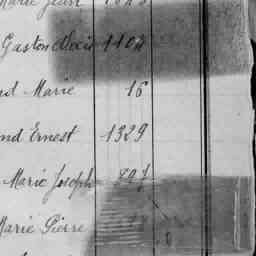 Marie Jean
Gaston Alexis 1102
nd Marie 16
nd Ernest 1329
Marie Joseph 897
Marie Pierre